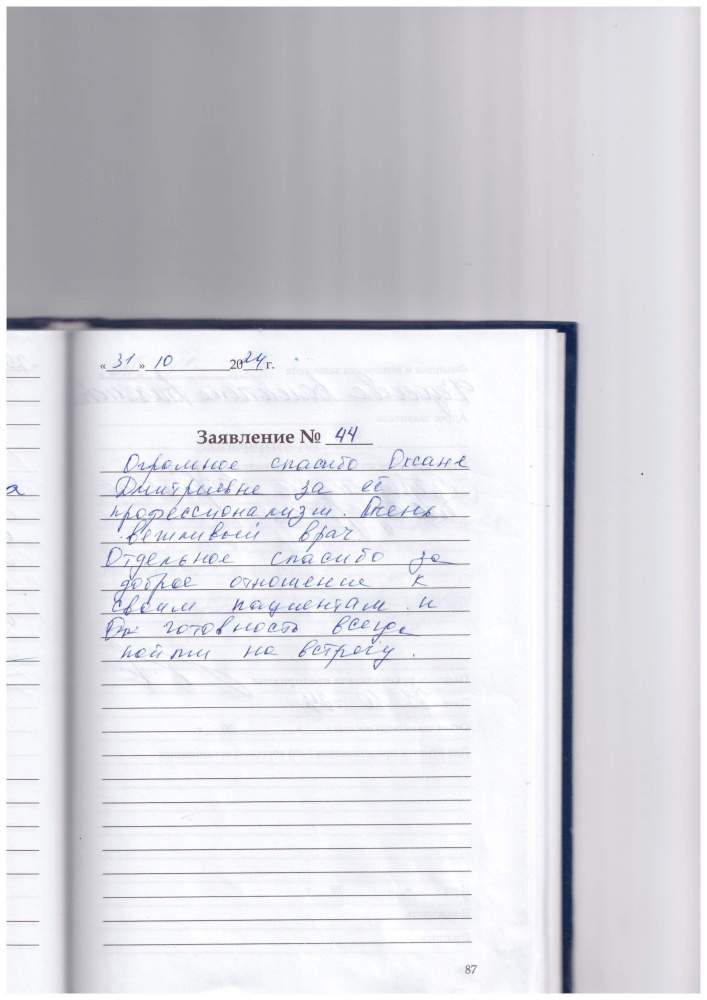 « 31 » 10 2024 г.
Заявление № 44
Огромное спасибо Оксане
Дмитриевне за её
профессионализм. Очень
вежливый врач
Отдельное спасибо за
доброе отношение к
своим пациентам и
готовность всегда
пойти на встречу.
87